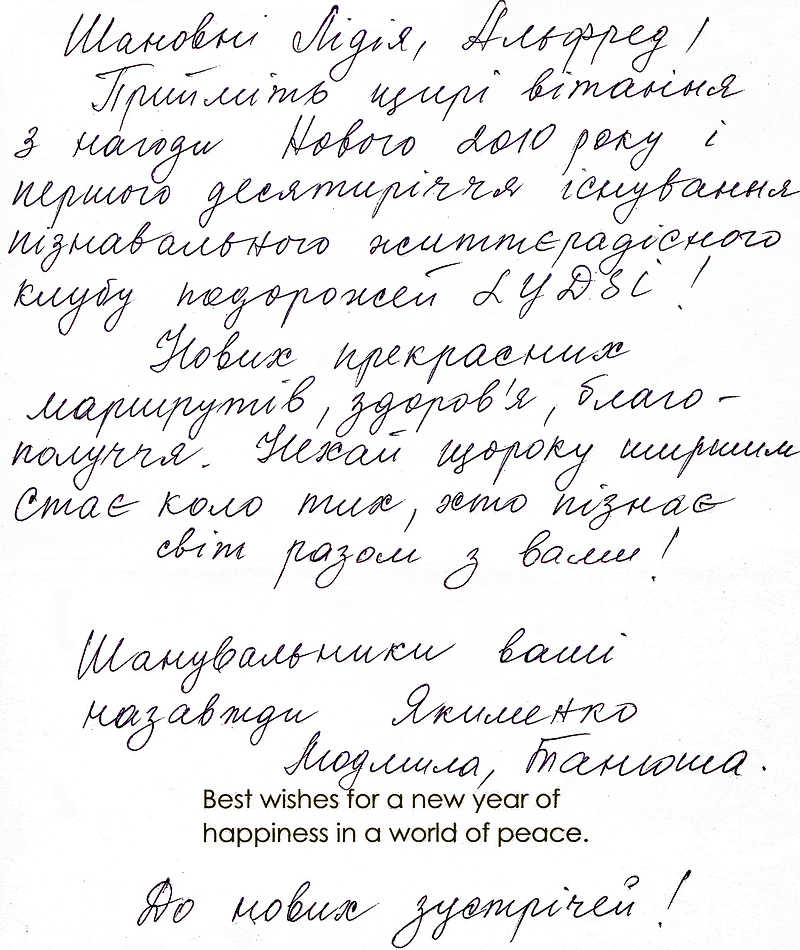 Шановні Лідія, Альфред!
Прийміть щирі вітання
з нагоди Нового 2010 року і
першого десятиріччя існування
пізнавального життєрадісного
клубу подорожей LYDSI!
Нових прекрасних
маршрутів, здоров'я, благо-
получчя. Нехай щороку ширшим
стає коло тих, хто пізнає
світ разом з вами!
Шанувальники ваші
назавжди Якименко
Людмила, Танюша.
Best wishes for a new year of
happiness in a world of peace.
До нових зустрічей!